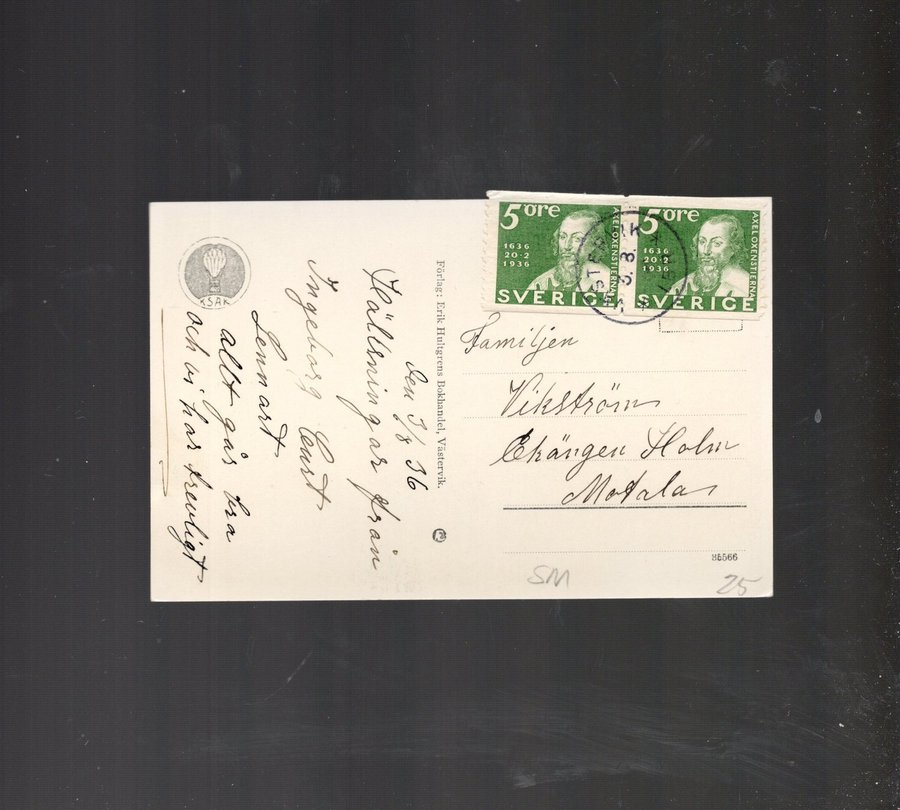 5 öre
1636
20·2
1936
AXEL OXENSTIERNA
SVERIGE
5 öre
1636
20·2
1936
AXEL OXENSTIERNA
SVERIGE
VÄSTERVIK
3. 8.
KSAK
Den 3/8 36
Hällsningar från
Ingeborg Curt
Lennart
allt går bra
och vi har trevligt
Förlag: Erik Hultgrens Bokhandel, Västervik.
Familjen
Vikström
Ekängen Holm
Motala
85566
SM
25